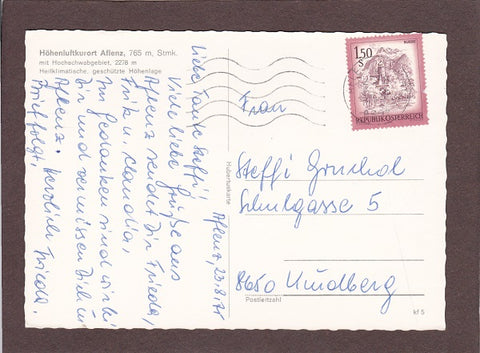 Höhenluftkurort Aflenz, 765 m, Stmk.
mit Hochschwabgebiet, 2278 m
Heilklimatische, geschützte Höhenlage
Aflenz, 23.8.75
Liebe Tante Steffi!
Viele liebe Grüße aus
Aflenz sendet Dir Frieda,
Erik u. Claudia.
In Gedanken sind wir bei
Dir und vermissen Dich in
Aflenz. Herzlich Frieda.
Brief folgt.
Hubertuskarte
1.50
S
REPUBLIK ÖSTERREICH
Frau
Steffi
Schulgasse 5
8650 Kindberg
Postleitzahl
kf 5